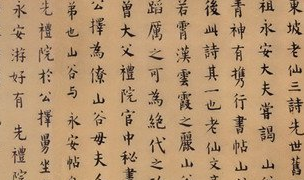 東坡老仙三詩先世舊
祖永安大夫嘗謁山谷
青神有携行書帖山
後此詩其一也老仙文
若霄漢雲霞之麗山
蹈厲之可為絕代之
曾大父禮院官中秘書
公擇為僚山谷母夫人
弟也山谷與永安帖
先禮院於公擇舅坐
永安游好有先禮院